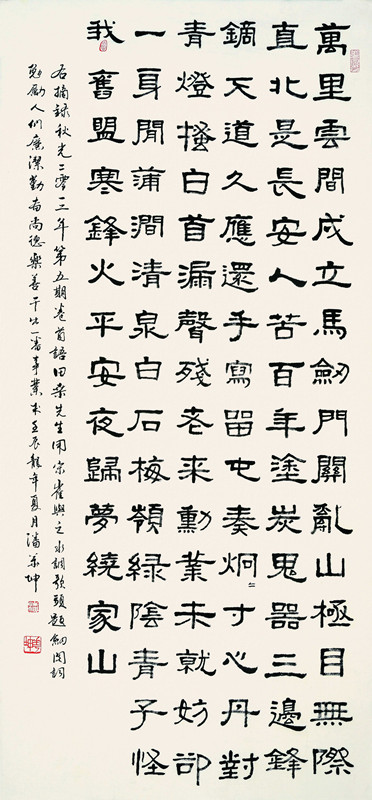 萬里雲間戍立馬劒門關亂山極目無際
直北是長安人苦百年塗炭鬼器三邊鋒
鏑天道久應還手寫留屯奏炯〻寸心丹對
青燈搔白首漏聲殘老來勳業未就妨卻
一身閒蒲澗清泉白石梅嶺綠陰青子怪
我舊盟寒鋒火平安夜歸夢繞家山
右摘錄秋光二零一二年第五期卷首語田先生開宗崔與之水調歌頭題劒閣詞
勉勵人們廉潔勤奮尚德樂善干出一番事業壬辰龍年夏月潘坤